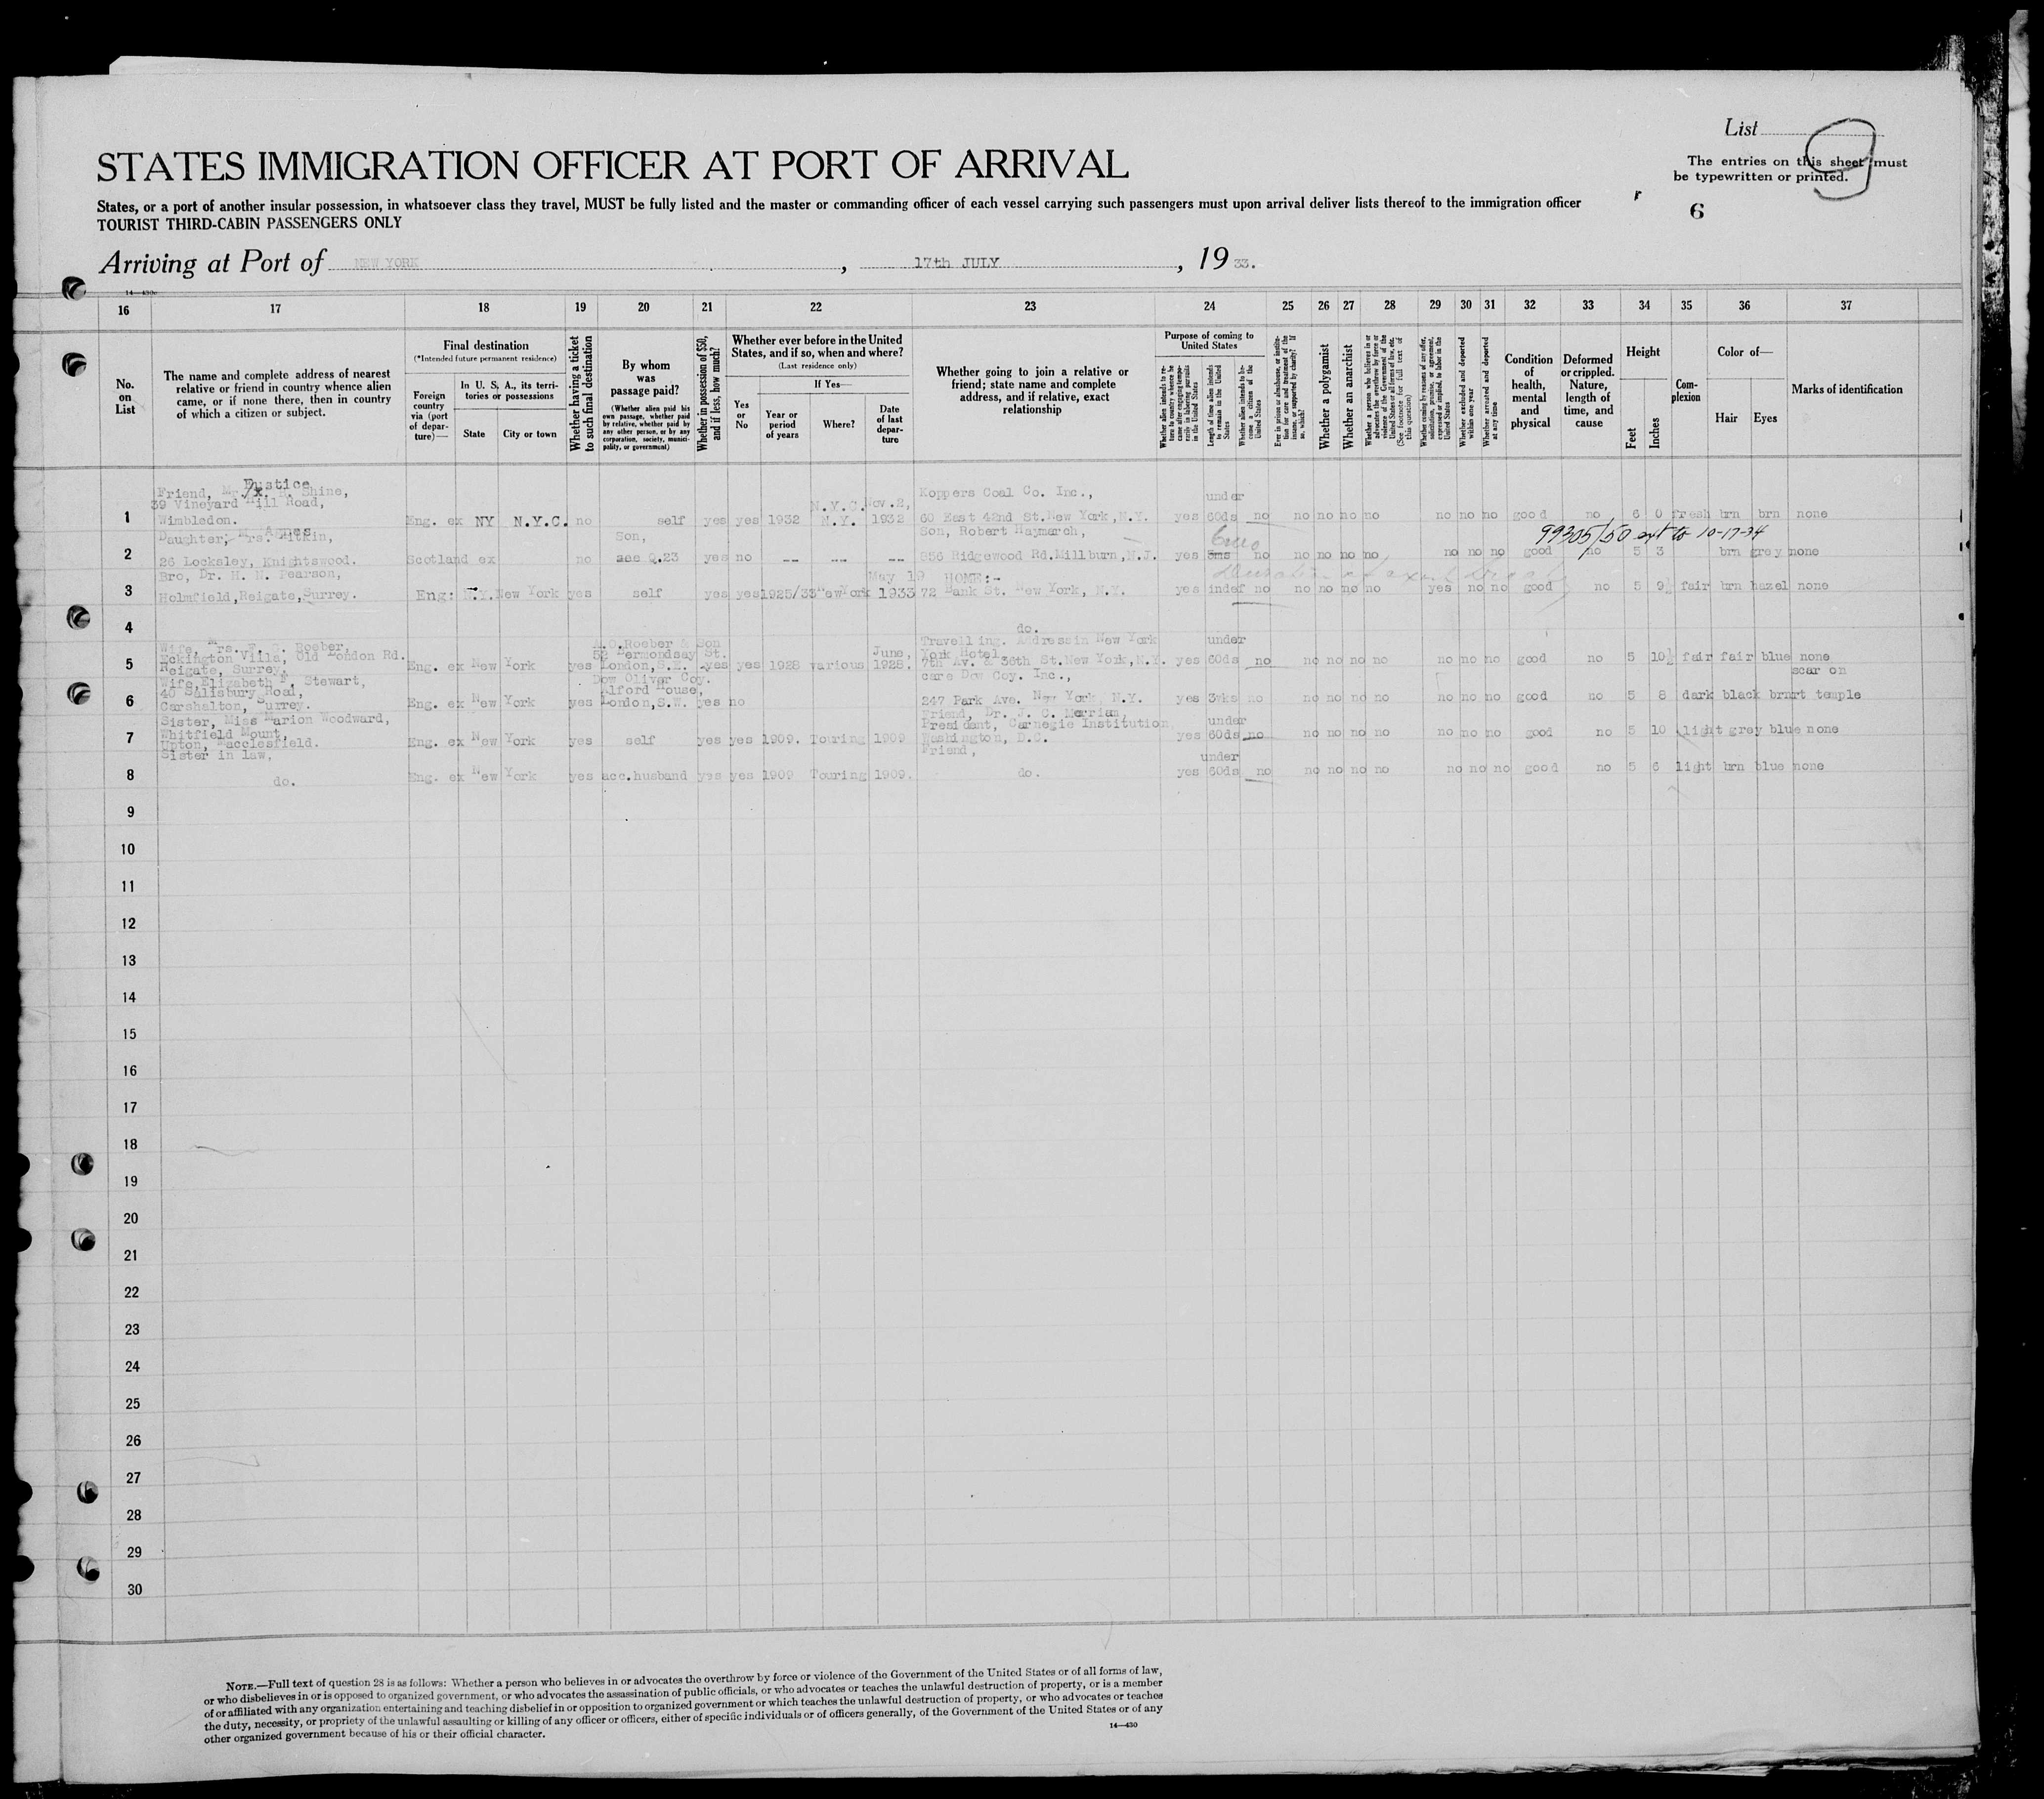 List
STATES IMMIGRATION OFFICER AT PORT OF ARRIVAL
The entries on this sheet must
be typewritten or printed.
States, or a port of another insular possession, in whatsoever class they travel, MUST be fully listed and the master or commanding officer of each vessel carrying such passengers must upon arrival deliver lists thereof to the immigration officer
TOURIST THIRD-CABIN PASSENGERS ONLY
6
Arriving at Port of NEW YORK , 17th JULY , 19 33.
14—430c
16 17 18 19 20 21 22 23 24 25 26 27 28 29 30 31 32 33 34 35 36 37
No. on List
The name and complete address of nearest relative or friend in country whence alien came, or if none there, then in country of which a citizen or subject.
Final destination
(*Intended future permanent residence)
Foreign country via (port of departure)—
In U. S, A., its territories or possessions
State
City or town
Whether having a ticket to such final destination
By whom was passage paid?
(Whether alien paid his own passage, whether paid by relative, whether paid by any other person, or by any corporation, society, municipality, or government)
Whether in possession of $50, and if less, how much?
Whether ever before in the United States, and if so, when and where?
(Last residence only)
If Yes—
Yes or No
Year or period of years
Where?
Date of last departure
Whether going to join a relative or friend; state name and complete address, and if relative, exact relationship
Purpose of coming to United States
Whether alien intends to return to country whence he came after engaging temporarily in laboring pursuits in the United States
Length of time alien intends to remain in the United States
Whether alien intends to become a citizen of the United States
Ever in prison or almshouse, or institution for care and treatment of the insane, or supported by charity? If so, which?
Whether a polygamist
Whether an anarchist
Whether a person who believes in or advocates the overthrow by force or violence of the Government of the United States or all forms of law, etc. (See footnote for full text of this question)
Whether coming by reasons of any offer, solicitation, promise, or agreement, expressed or implied, to labor in the United States
Whether excluded and deported within one year
Whether arrested and deported at any time
Condition of health, mental and physical
Deformed or crippled. Nature, length of time, and cause
Height
Feet
Inches
Complexion
Color of—
Hair
Eyes
Marks of identification
1 Friend, Eustice Shine,
39 Vineyard Hill Road,
Wimbledon. Eng. ex NY N.Y.C. no self yes yes 1932 N.Y.C. N.Y. Nov.2, 1932 Koppers Coal Co. Inc.,
60 East 42nd St. New York, N.Y. yes under 60ds no no no no no no no no good 6 0 fresh brn brn none
99305/50 ext to 10-17-34
2 Daughter, Mrs. Agnes Aitkin,
26 Locksley, Knightswood. Scotland ex no Son, see Q.23 yes no -- -- -- Son, Robert Haymarch,
856 Ridgewood Rd. Millburn, N.J. yes 6mo no no no no no no no no good no 5 3 brn grey none
3 Bro, Dr. H. N. Pearson,
Holmfield, Reigate, Surrey. Eng: N.Y. New York yes self yes yes 1925/33 New York May 19 1933 HOME:-
72 Bank St. New York, N.Y. yes indef no no no no no yes no no good no 5 9½ fair brn hazel none
4 do.
5 Wife, Mrs. F. G. Roeber,
Eckington Villa, Old London Rd.
Reigate, Surrey, Eng. ex New York yes A.O.Roeber & Son
52 Bermondsay St.
London, S.E. yes yes 1928 various June, 1928. Travelling. Address in New York
York Hotel
7th Av. & 36th St. New York, N.Y. yes under 60ds no no no no no no no no good no 5 10½ fair fair blue none
6 Wife, Elizabeth F. Stewart,
40 Salisbury Road,
Carshalton, Surrey. Eng. ex New York yes Dow Oliver Coy.
Alford House,
London, S.W. yes no care Dow Coy. Inc.,
247 Park Ave. New York, N.Y. yes 3wks no no no no no no no no good no 5 8 dark black brn scar on rt temple
7 Sister, Miss Marion Woodward,
Whitfield Mount,
Upton, Macclesfield. Eng. ex New York yes self yes yes 1909. Touring 1909 Friend, Dr. J. C. Merriam,
President, Carnegie Institution,
Washington, D.C. yes under 60ds no no no no no no no no good no 5 10 light grey blue none
8 Sister in law,
do. Eng. ex New York yes acc.husband yes yes 1909 Touring 1909. Friend,
do. yes under 60ds no no no no no no no no good no 5 6 light brn blue none
9
10
11
12
13
14
15
16
17
18
19
20
21
22
23
24
25
26
27
28
29
30
NOTE.—Full text of question 28 is as follows: Whether a person who believes in or advocates the overthrow by force or violence of the Government of the United States or of all forms of law,
or who disbelieves in or is opposed to organized government, or who advocates the assassination of public officials, or who advocates or teaches the unlawful destruction of property, or is a member
of or affiliated with any organization entertaining and teaching disbelief in or opposition to organized government or which teaches the unlawful destruction of property, or who advocates or teaches
the duty, necessity, or propriety of the unlawful assaulting or killing of any officer or officers, either of specific individuals or of officers generally, of the Government of the United States or of any
other organized government because of his or their official character.
14—430